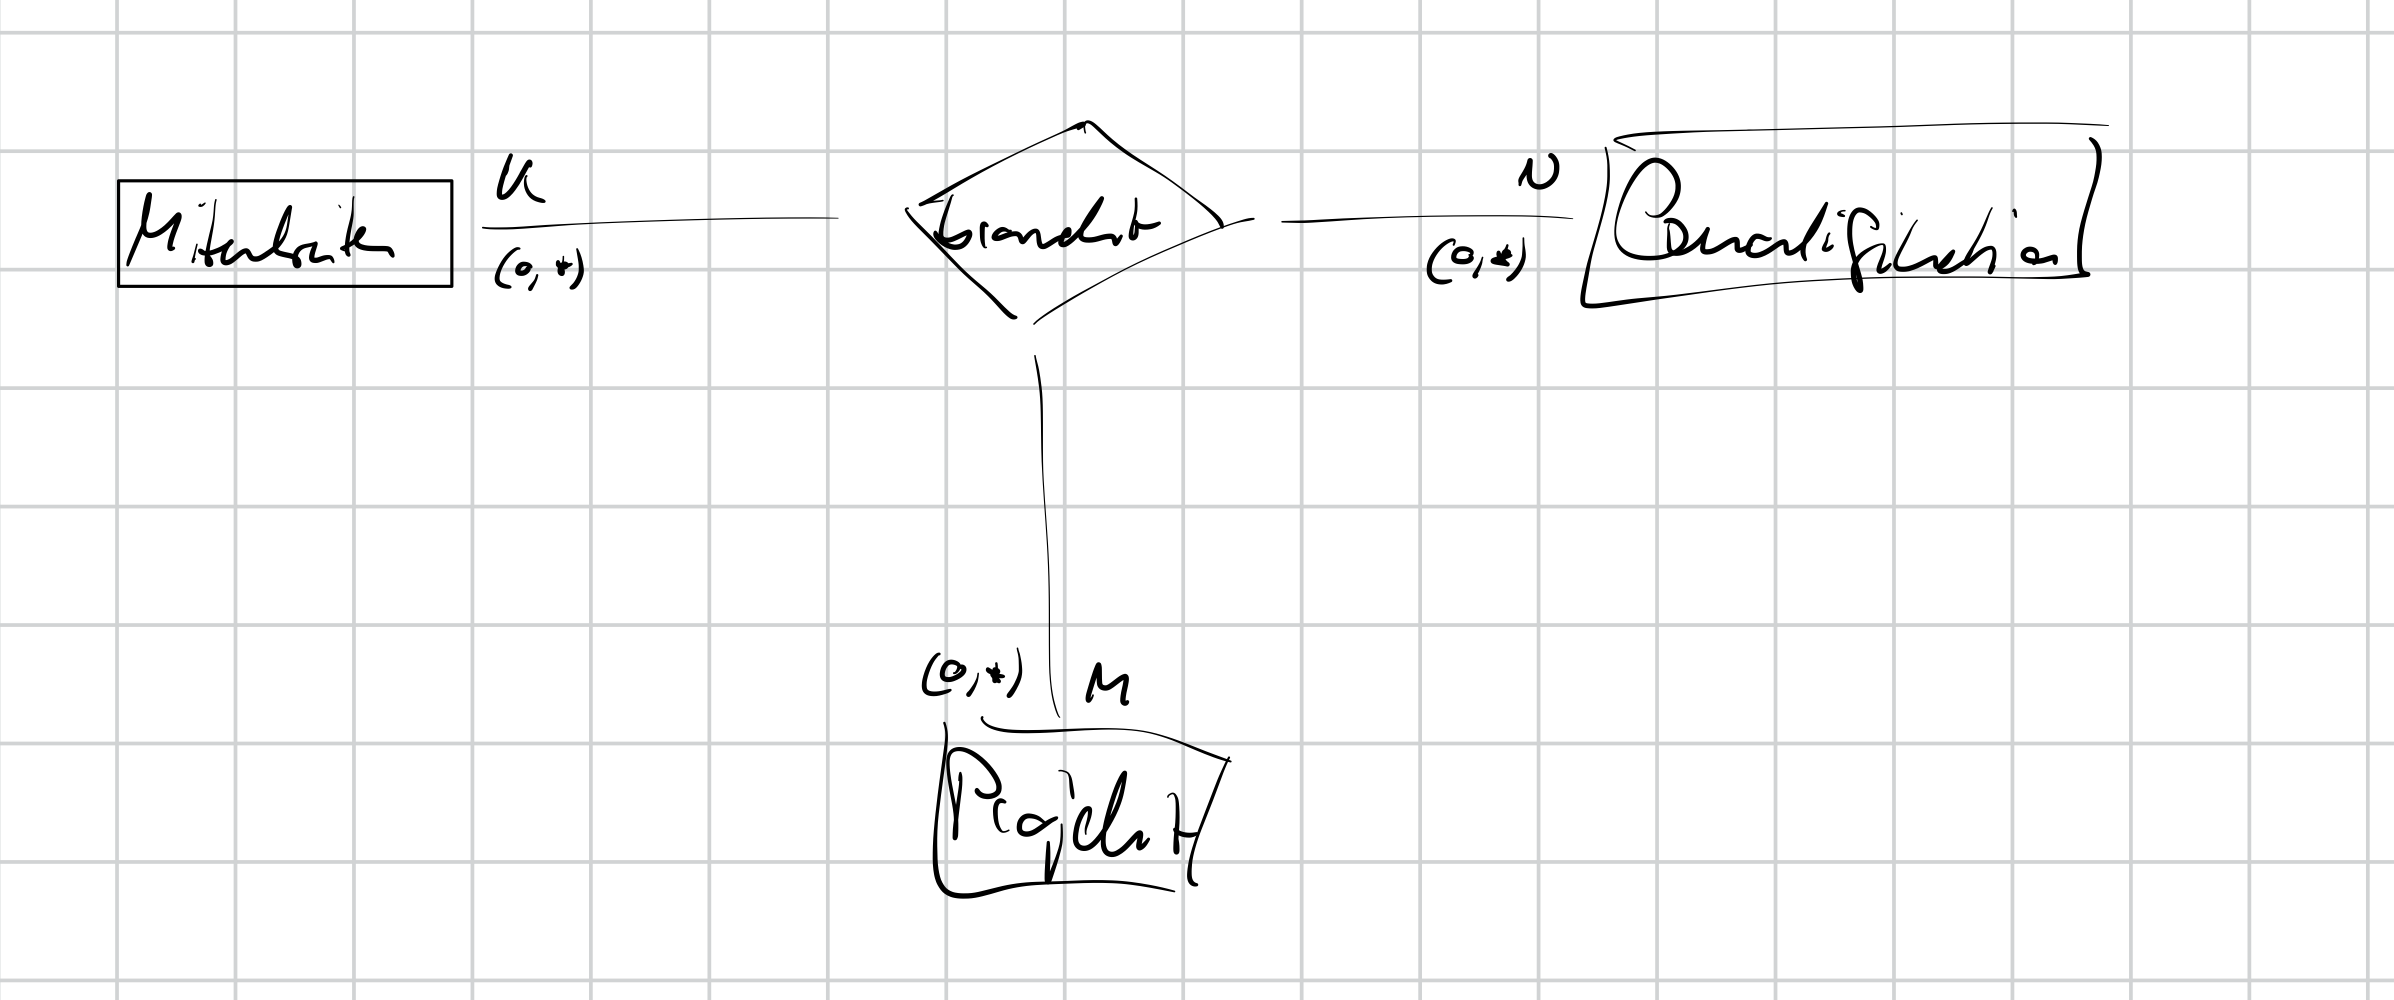 K
N
Mitarbeiter
braucht
Qualifikation
(0,*)
(0,*)
(0,*) M
Projekt